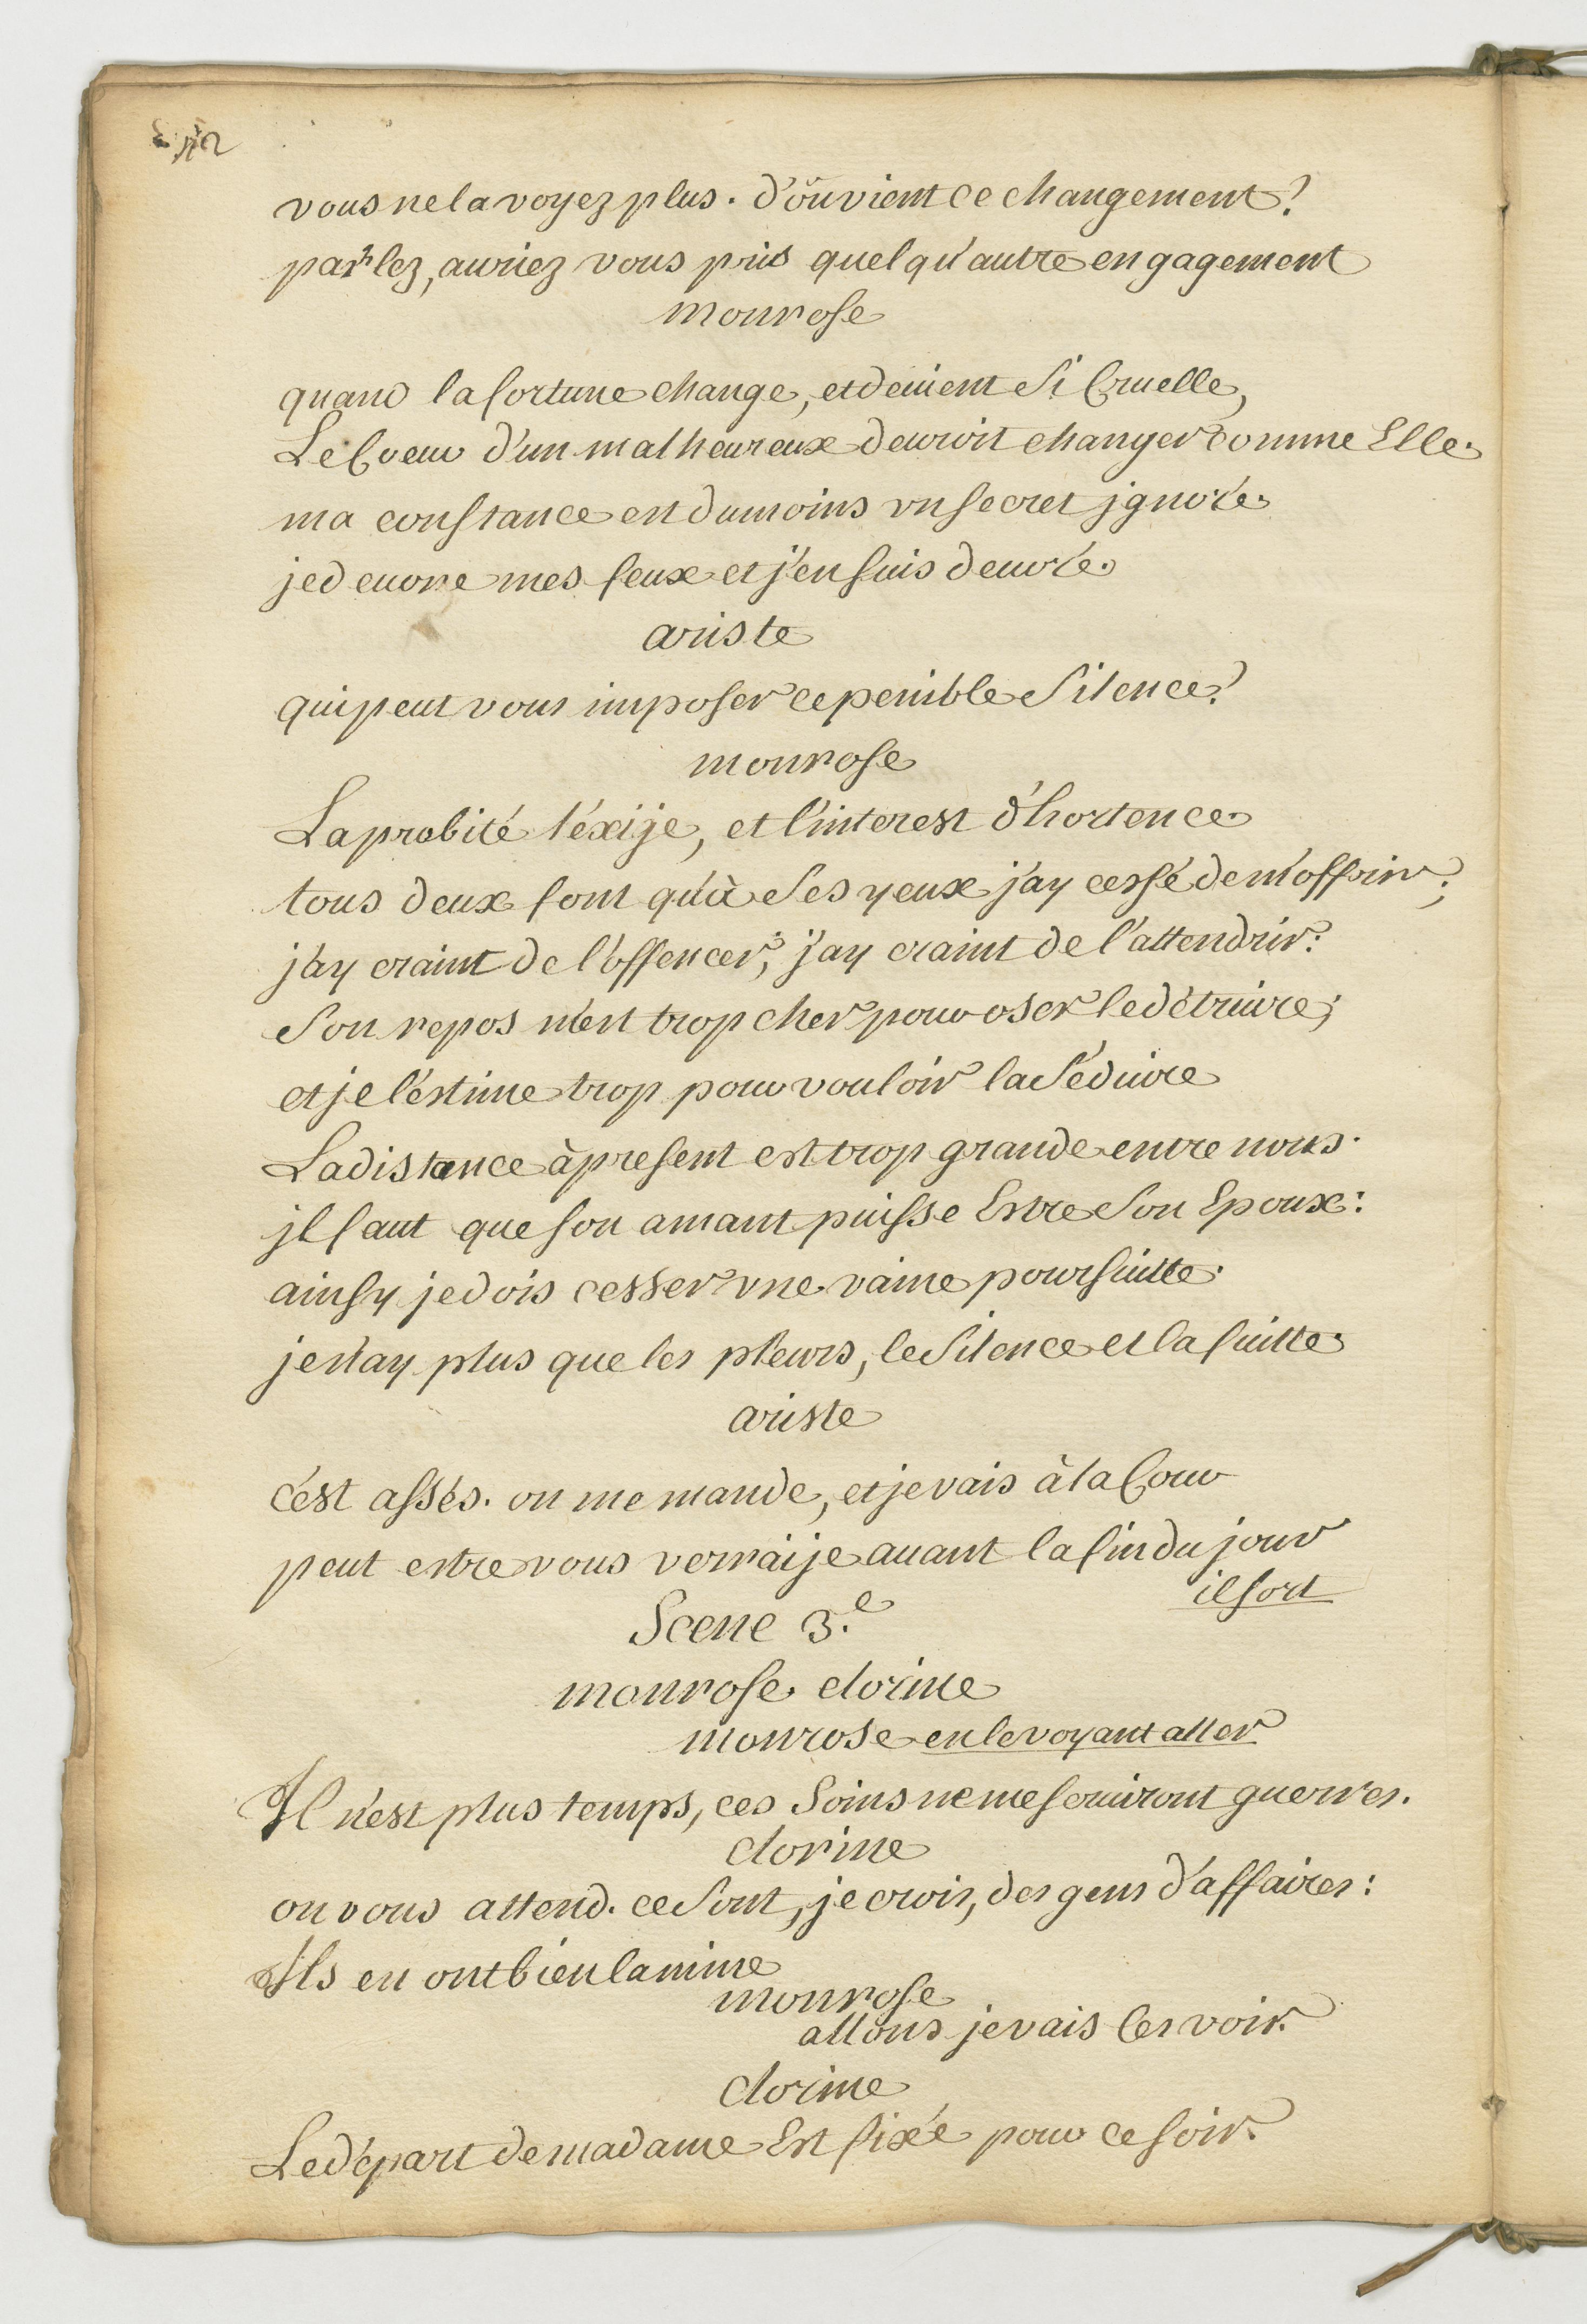 vous ne la voyez plus. d'où vient ce changement?
parlez, auriez vous pris quelqu'autre engagement
monrose
quand la fortune change, et devient si Cruelle,
Le Coeur d'un malheureux devroit changer comme Elle.
ma constance est du moins vn secret jgnoré.
je devore mes feux et j'en suis devoré.
ariste
qui peut vous imposer ce penible silence?
monrose
La probité l'éxije, et l'interest d'hortence.
tous deux font qu'à ses yeux j'ay cessé de m'offrir;
j'ay craint de l'offencer, j'ay craint de l'attendrir:
Son repos m'est trop cher pour oser le détruire;
et je l'éstime trop pour vouloir la séduire
La distance à present est trop grande entre nous.
jl faut que son amant puisse Estre son Epoux:
ainsy je dois cesser vne vaine poursuitte.
je n'ay plus que les pleurs, le silence et la fuitte.
ariste
c'est assés. on me mande, et je vais à la Cour
peut estre vous verraije avant la fin du jour
il sort
Scene 3.e
monrose dorine
monrose en le voyant aller
Il n'est plus temps, ces soins ne me serviront guerres.
dorine
on vous attend. ce sont, je crois, des gens d'affaires:
Ils en ont bien la mine
monrose
allons je vais les voir.
dorine
Le départ de madame Est fixé pour ce soir.